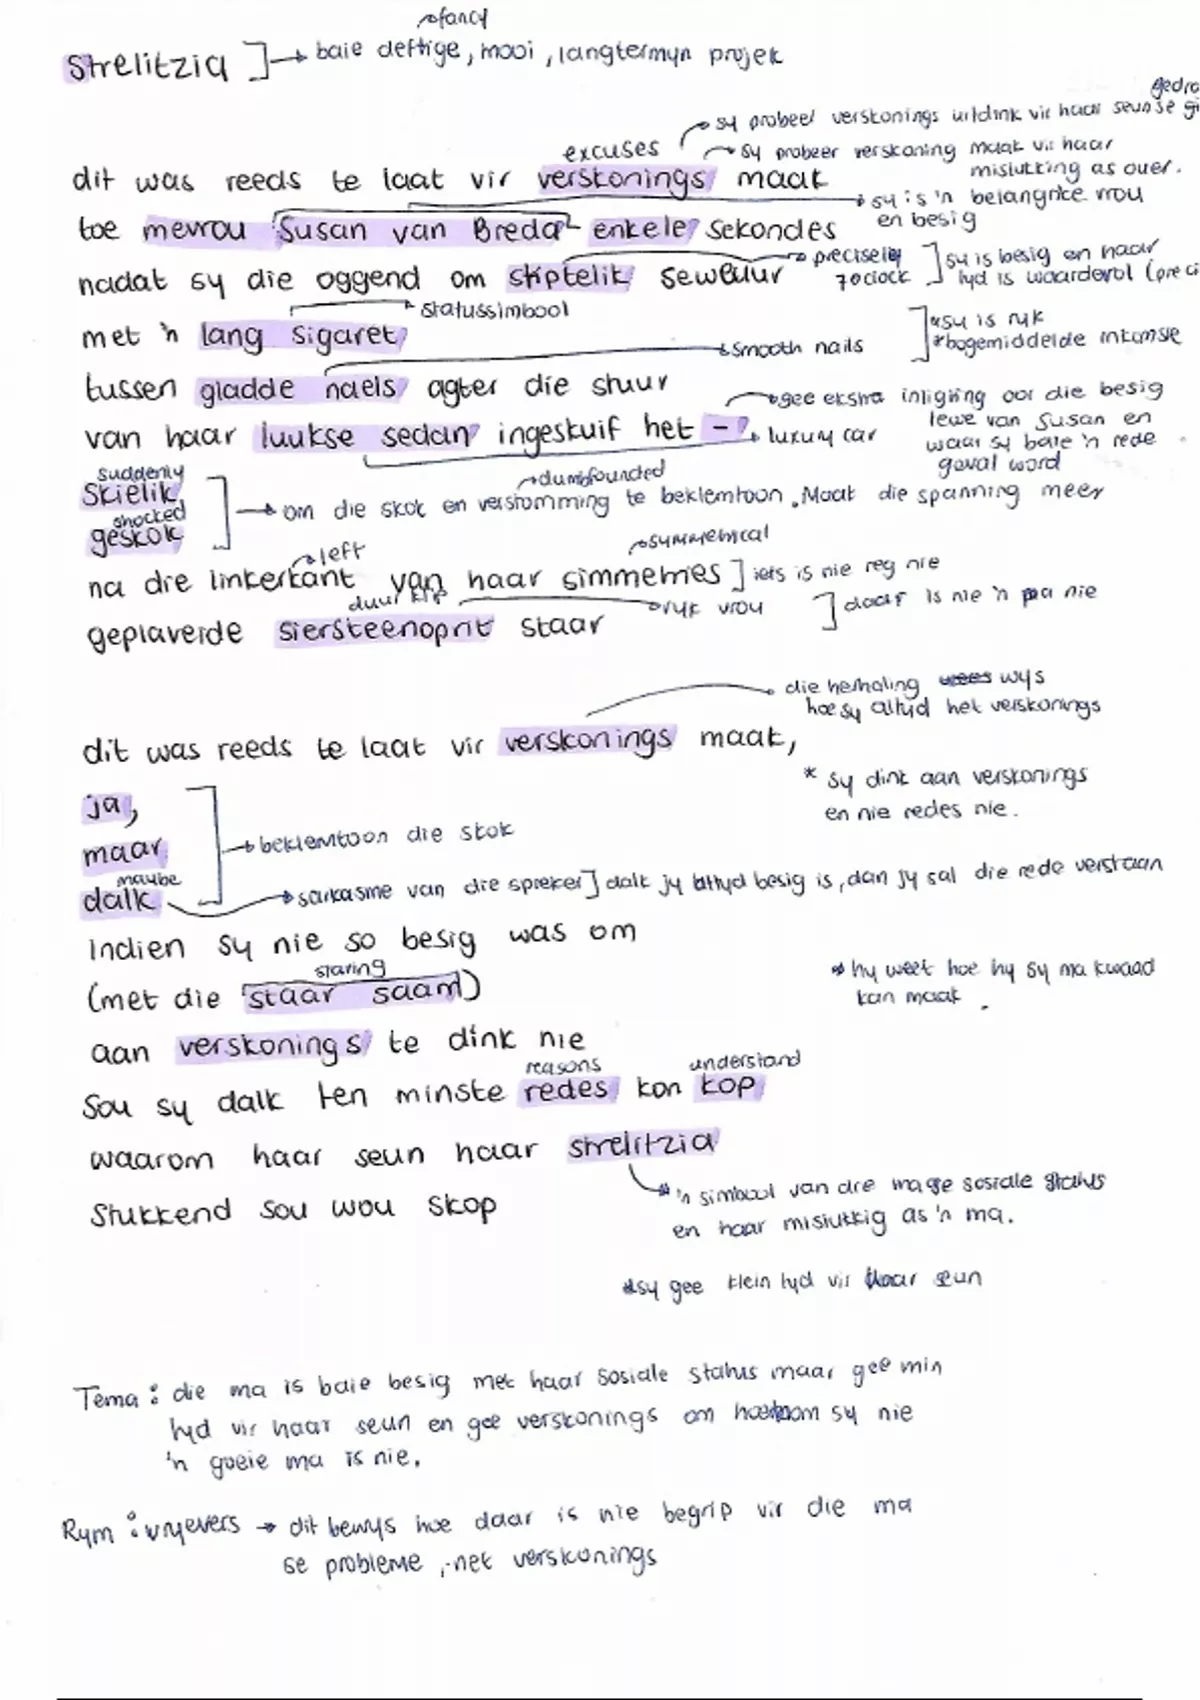 fancy
Strelitzia ] → baie deftige, mooi, langtermyn projek
gedra
sy probeer verskonings uitdink vir haar seun se
excuses
sy probeer verskoning maak vir haar
mislukking as ouer.
dit was reeds te laat vir verskonings maak
sy is 'n belangrike vrou
en besig
toe mevrou Susan van Breda enkele sekondes
precisely
7 oclock
sy is besig en haar
tyd is waardevol (preci
nadat sy die oggend om stiptelik seweuur
statussimbool
met 'n lang sigaret
*sy is ryk
*bogemiddelde inkomste
smooth nails
tussen gladde naels agter die stuur
gee ekstra inligting oor die besig
lewe van Susan en
waar sy baie 'n rede
geval word
van haar luukse sedan ingeskuif het -
luxury car
suddenly
Skielik,
shocked
geskok
dumbfounded
om die skok en verstomming te beklemtoon. Maak die spanning meer
left
symmetrical
na die linkerkant van haar simmetries ] iets is nie reg nie
duur klip
ryk vrou ] daar is nie 'n pa nie
geplaveide siersteenoprit staar
die herhaling wys
hoe sy altyd het verskonings
dit was reeds te laat vir verskonings maak,
* sy dink aan verskonings
en nie redes nie.
ja,
maar
beklemtoon die skok
maybe
dalk
sarkasme van die spreker ] dalk jy altyd besig is, dan jy sal die rede verstaan
Indien sy nie so besig was om
staring
(met die staar saam)
* hy weet hoe hy sy ma kwaad
kan maak.
aan verskonings te dink nie
reasons
understand
Sou sy dalk ten minste redes kon kop
waarom haar seun haar strelitzia
* 'n simbool van die ma se sosiale status
en haar mislukkig as 'n ma.
Stukkend sou wou skop
*sy gee klein tyd vir haar seun
Tema: die ma is baie besig met haar sosiale status maar gee min
tyd vir haar seun en gee verskonings om sy nie
'n goeie ma is nie.
Rym: vryevers → dit bewys hoe daar is nie begrip vir die ma
se probleme, net verskonings